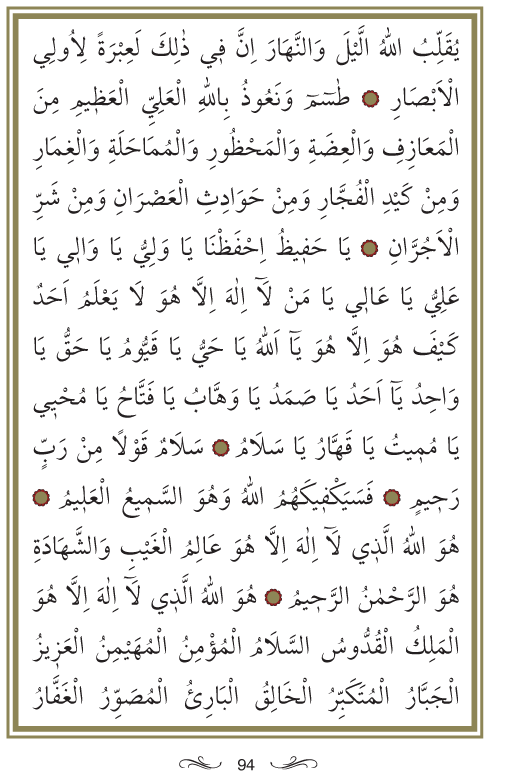 يُقَلِّبُ اللّٰهُ الَّيْلَ وَالنَّهَارَ اِنَّ ف۪ي ذٰلِكَ لَعِبْرَةً لِاُولِي
الْاَبْصَارِ ۞ طٰسٓمٓ وَنَعُوذُ بِاللّٰهِ الْعَلِيِّ الْعَظ۪يمِ مِنَ
الْمَعَازِفِ وَالْعِضَةِ وَالْمَحْظُورِ وَالْمُمَاحَلَةِ وَالْغِمَارِ
وَمِنْ كَيْدِ الْفُجَّارِ وَمِنْ حَوَادِثِ الْعَصْرَانِ وَمِنْ شَرِّ
الْاَجُرَّانِ ۞ يَا حَف۪يظُ اِحْفَظْنَا يَا وَلِيُّ يَا وَال۪ي يَا
عَلِيُّ يَا عَال۪ي يَا مَنْ لَٓا اِلٰهَ اِلَّا هُوَ لَا يَعْلَمُ اَحَدٌ
كَيْفَ هُوَ اِلَّا هُوَ يَٓا اَللّٰهُ يَا حَيُّ يَا قَيُّومُ يَا حَقُّ يَا
وَاحِدُ يَٓا اَحَدُ يَا صَمَدُ يَا وَهَّابُ يَا فَتَّاحُ يَا مُحْي۪ي
يَا مُم۪يتُ يَا قَهَّارُ يَا سَلَامُ ۞ سَلَامٌ قَوْلًا مِنْ رَبٍّ
رَح۪يمٍ ۞ فَسَيَكْف۪يكَهُمُ اللّٰهُ وَهُوَ السَّم۪يعُ الْعَل۪يمُ ۞
هُوَ اللّٰهُ الَّذ۪ي لَٓا اِلٰهَ اِلَّا هُوَ عَالِمُ الْغَيْبِ وَالشَّهَادَةِ
هُوَ الرَّحْمٰنُ الرَّح۪يمُ ۞ هُوَ اللّٰهُ الَّذ۪ي لَٓا اِلٰهَ اِلَّا هُوَ
الْمَلِكُ الْقُدُّوسُ السَّلَامُ الْمُؤْمِنُ الْمُهَيْمِنُ الْعَز۪يزُ
الْجَبَّارُ الْمُتَكَبِّرُ الْخَالِقُ الْبَارِئُ الْمُصَوِّرُ الْغَفَّارُ
94